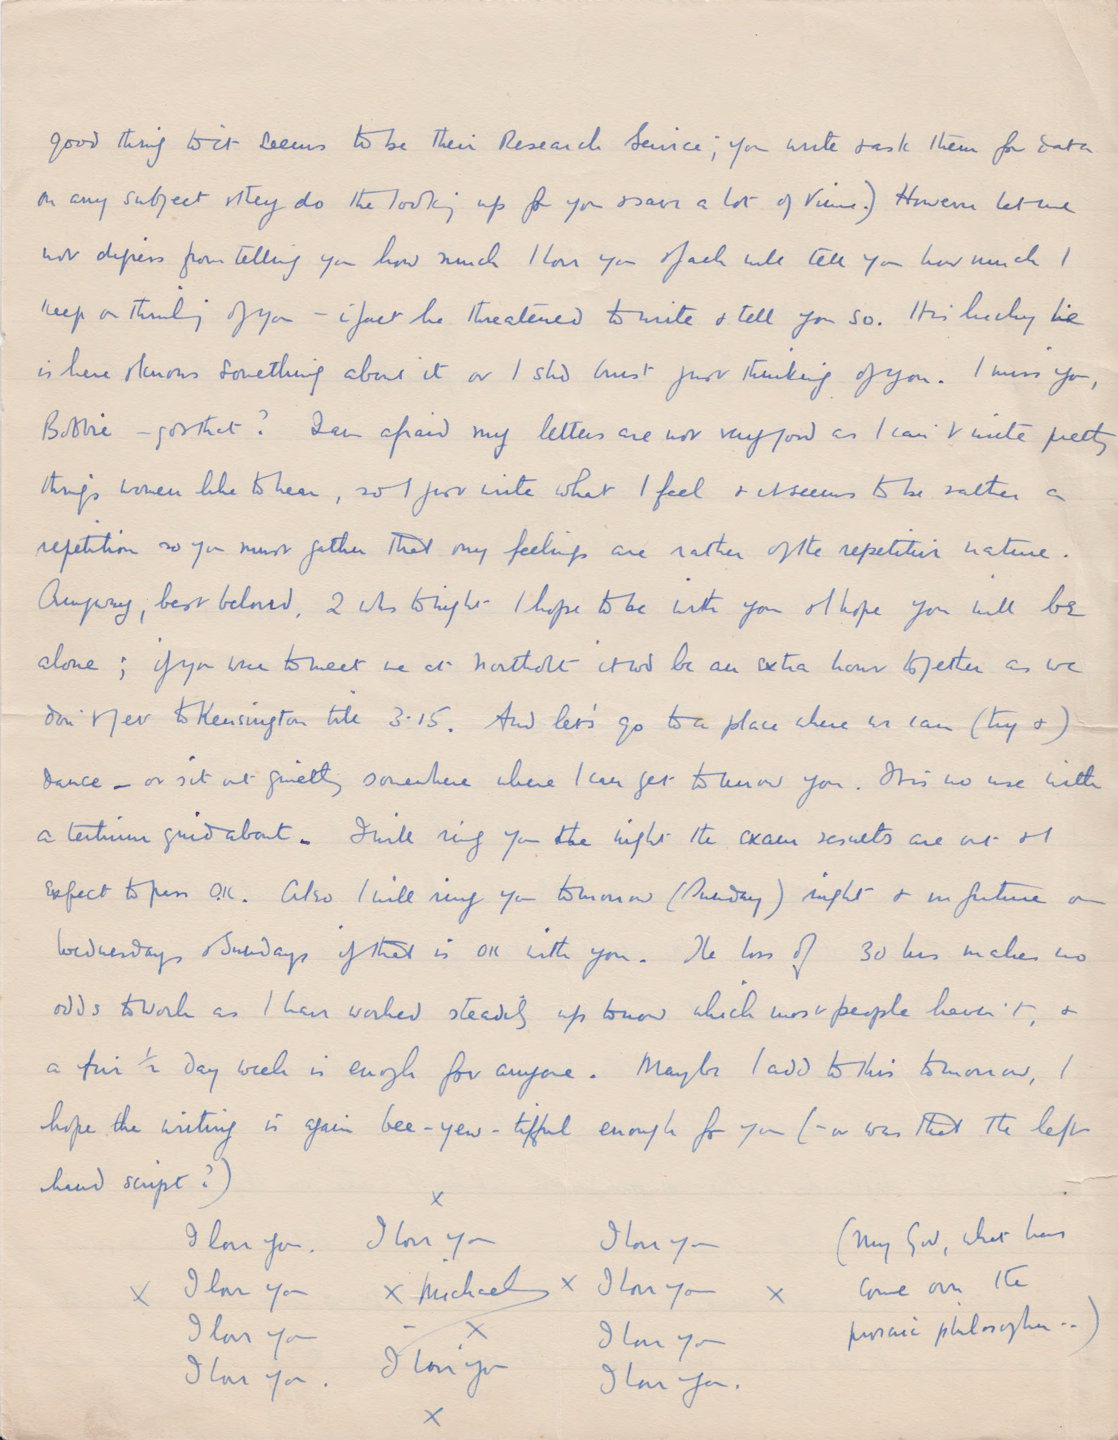 good thing to it seems to be their Research Service; you write & ask them for data
on any subject & they do the looking up for you & save a lot of time.) However let me
not digress from telling you how much I love you & Jack will tell you how much I
keep on thinking of you – in fact he threatened to write & tell you so. It is lucky he
is here & knows something about it or I shd burst just thinking of you. I miss you,
Bobbie – got that? I am afraid my letters are not very good as I can't write pretty
things women like to hear, so I just write what I feel & it seems to be rather a
repetition so you must gather that my feelings are rather of the repetitive nature.
Anyway, best beloved, 2 wks tonight I hope to be with you & I hope you will be
alone; if you were to meet me at Northolt it wd be an extra hour together as we
don't get to Kensington till 3.15. And let's go to a place where we can (try &)
dance – or sit out quietly somewhere where I can get to know you. It is no use with
a tertium quid about. I will ring you the night the exam results are out & I
expect to pass OK. Also I will ring you tomorrow (Sunday) night & in future on
Wednesdays & Sundays if that is OK with you. The loss of 30 hrs makes no
odds to work as I have worked steadily up to now which most people haven't, &
a five ½ day week is enough for anyone. Maybe I add to this tomorrow, I
hope the writing is again bee-yew-tifful enough for you (– or was that the left
hand script?)
x
I love you. I love you I love you (My God, what has
x I love you x Michael x I love you x come over the
I love you x I love you prosaic philosopher --)
I love you. I love you I love you.
x